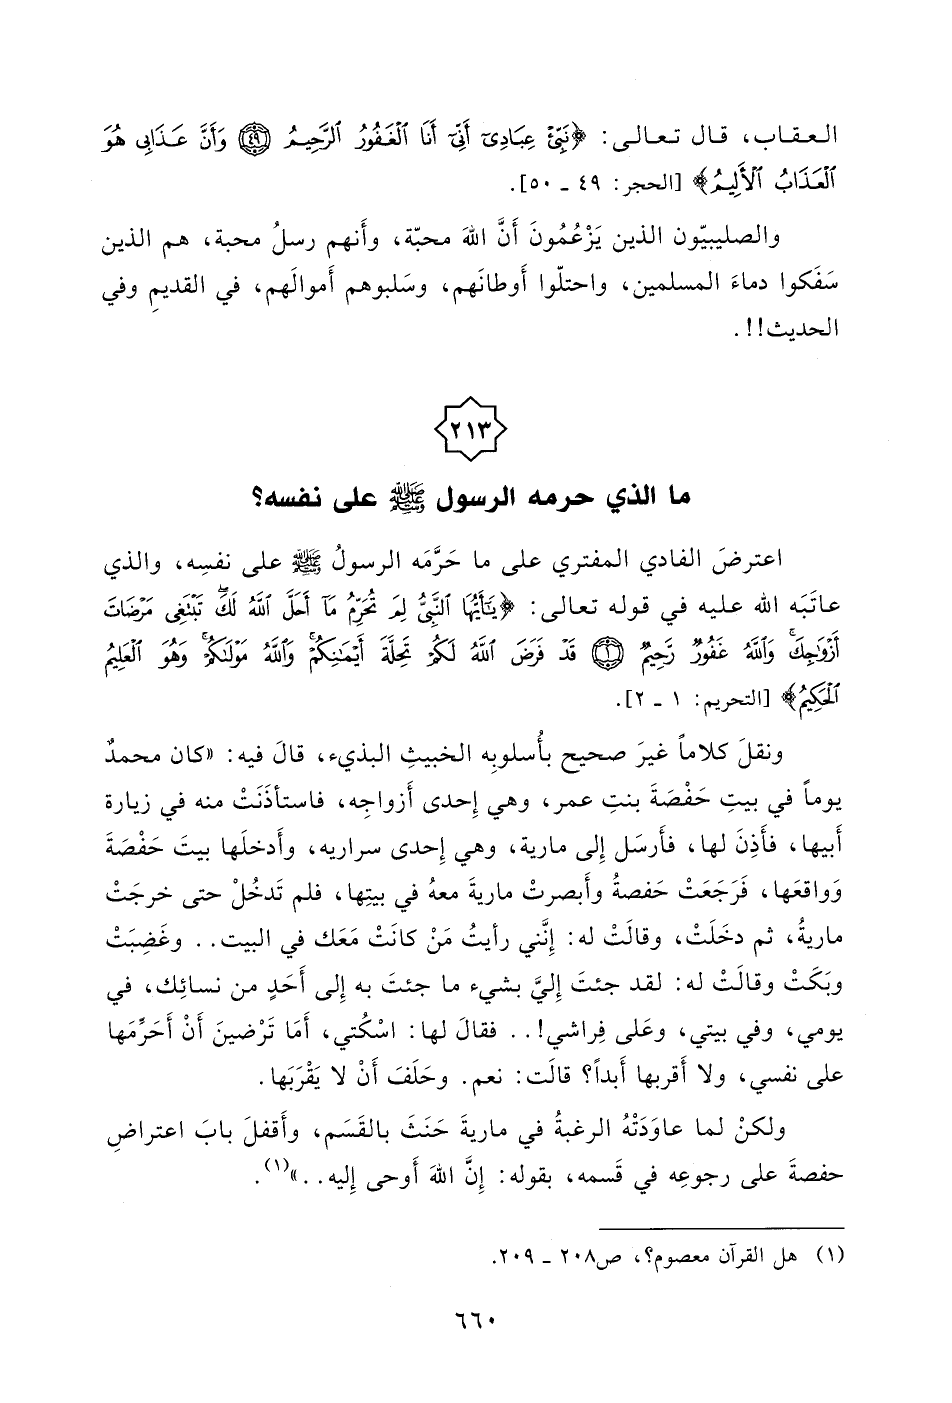 العقاب، قال تعالى: ﴿نَبِّئْ عِبَادِىٓ أَنِّىٓ أَنَا ٱلْغَفُورُ ٱلرَّحِيمُ ﴿٤٩﴾ وَأَنَّ عَذَابِى هُوَ
ٱلْعَذَابُ ٱلْأَلِيمُ﴾ [الحجر: ٤٩ ـ ٥٠].
والصليبيّون الذين يَزْعُمُونَ أَنَّ اللهَ محبّة، وأَنهم رسلُ محبة، هم الذين
سَفَكوا دماءَ المسلمين، واحتلّوا أَوطانَهم، وسَلبوهم أَموالَهم، في القديمِ وفي
الحديث!!.
٢١٣
ما الذي حرمه الرسول ﷺ على نفسه؟
اعترضَ الفادي المفتري على ما حَرَّمَه الرسولُ ﷺ على نفسِه، والذي
عاتَبَه الله عليه في قوله تعالى: ﴿يَٰٓأَيُّهَا ٱلنَّبِىُّ لِمَ تُحَرِّمُ مَآ أَحَلَّ ٱللَّهُ لَكَ ۖ تَبْتَغِى مَرْضَاتَ
أَزْوَٰجِكَ ۚ وَٱللَّهُ غَفُورٌ رَّحِيمٌ ﴿١﴾ قَدْ فَرَضَ ٱللَّهُ لَكُمْ تَحِلَّةَ أَيْمَٰنِكُمْ ۚ وَٱللَّهُ مَوْلَىٰكُمْ ۖ وَهُوَ ٱلْعَلِيمُ
ٱلْحَكِيمُ﴾ [التحريم: ١ ـ ٢].
ونقلَ كلاماً غيرَ صحيح بأُسلوبِه الخبيثِ البذيء، قالَ فيه: «كان محمدٌ
يوماً في بيتِ حَفْصَةَ بنتِ عمر، وهي إِحدى أَزواجِه، فاستأذَنَتْ منه في زيارة
أَبيها، فأَذِنَ لها، فأَرسَل إِلى مارية، وهي إِحدى سراريه، وأَدخلَها بيتَ حَفْصَةَ
وَواقعَها، فَرَجَعَتْ حَفصةُ وأَبصرتْ ماريةَ معهُ في بيتِها، فلم تَدخُلْ حتى خرجَتْ
ماريةُ، ثم دخَلَتْ، وقالَتْ له: إِنَّني رأيتُ مَنْ كانَتْ مَعَك في البيت.. وغَضِبَتْ
وبَكَتْ وقالَتْ له: لقد جئتَ إِليَّ بشيء ما جئتَ به إِلى أَحَدٍ من نسائِك، في
يومي، وفي بيتي، وعَلى فِراشي!.. فقالَ لها: اسْكُتي، أَمَا تَرْضينَ أَنْ أُحَرِّمَها
على نفسي، ولا أَقربها أَبداً؟ قالَت: نعم. وحَلَفَ أَنْ لا يَقْرَبَها.
ولكنْ لما عاوَدَتْهُ الرغبةُ في ماريةَ حَنَثَ بالقَسَم، وأَقفلَ بابَ اعتراضِ
حفصةَ على رجوعِه في قَسمه، بقوله: إِنَّ اللهَ أَوحى إِليه..»(١).
(١) هل القرآن معصوم؟، ص٢٠٨ ـ ٢٠٩.
٦٦٠